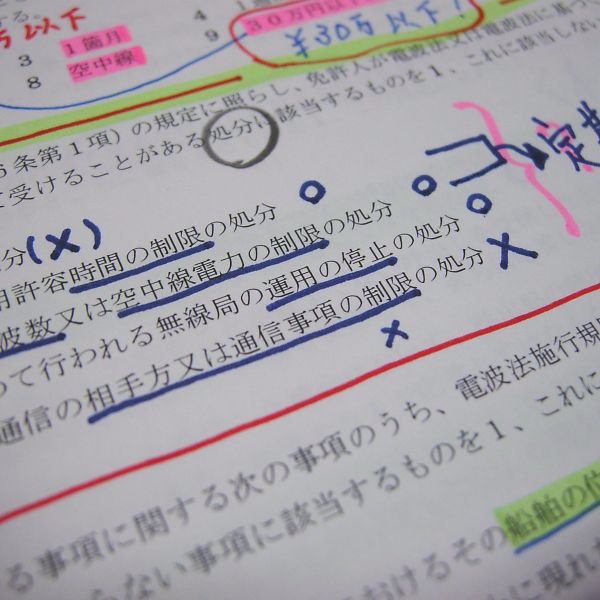 する。
万以下
3 1箇月
8 空中線
4
9 30万円以下
¥30万以下!
6条第1項）の規定に照らし、免許人が電波法又は電波法に基づ
て受けることがある処分に該当するものを1、これに該当しない
分(×)
用許容時間の制限の処分 ○
波数又は空中線電力の制限の処分 ○
って行われる無線局の運用の停止の処分 ○
通信の相手方又は通信事項の制限の処分 ×
×
る事項に関する次の事項のうち、電波法施行規則
らない事項に該当するものを1、これに
おけるその船舶の位
に現れた